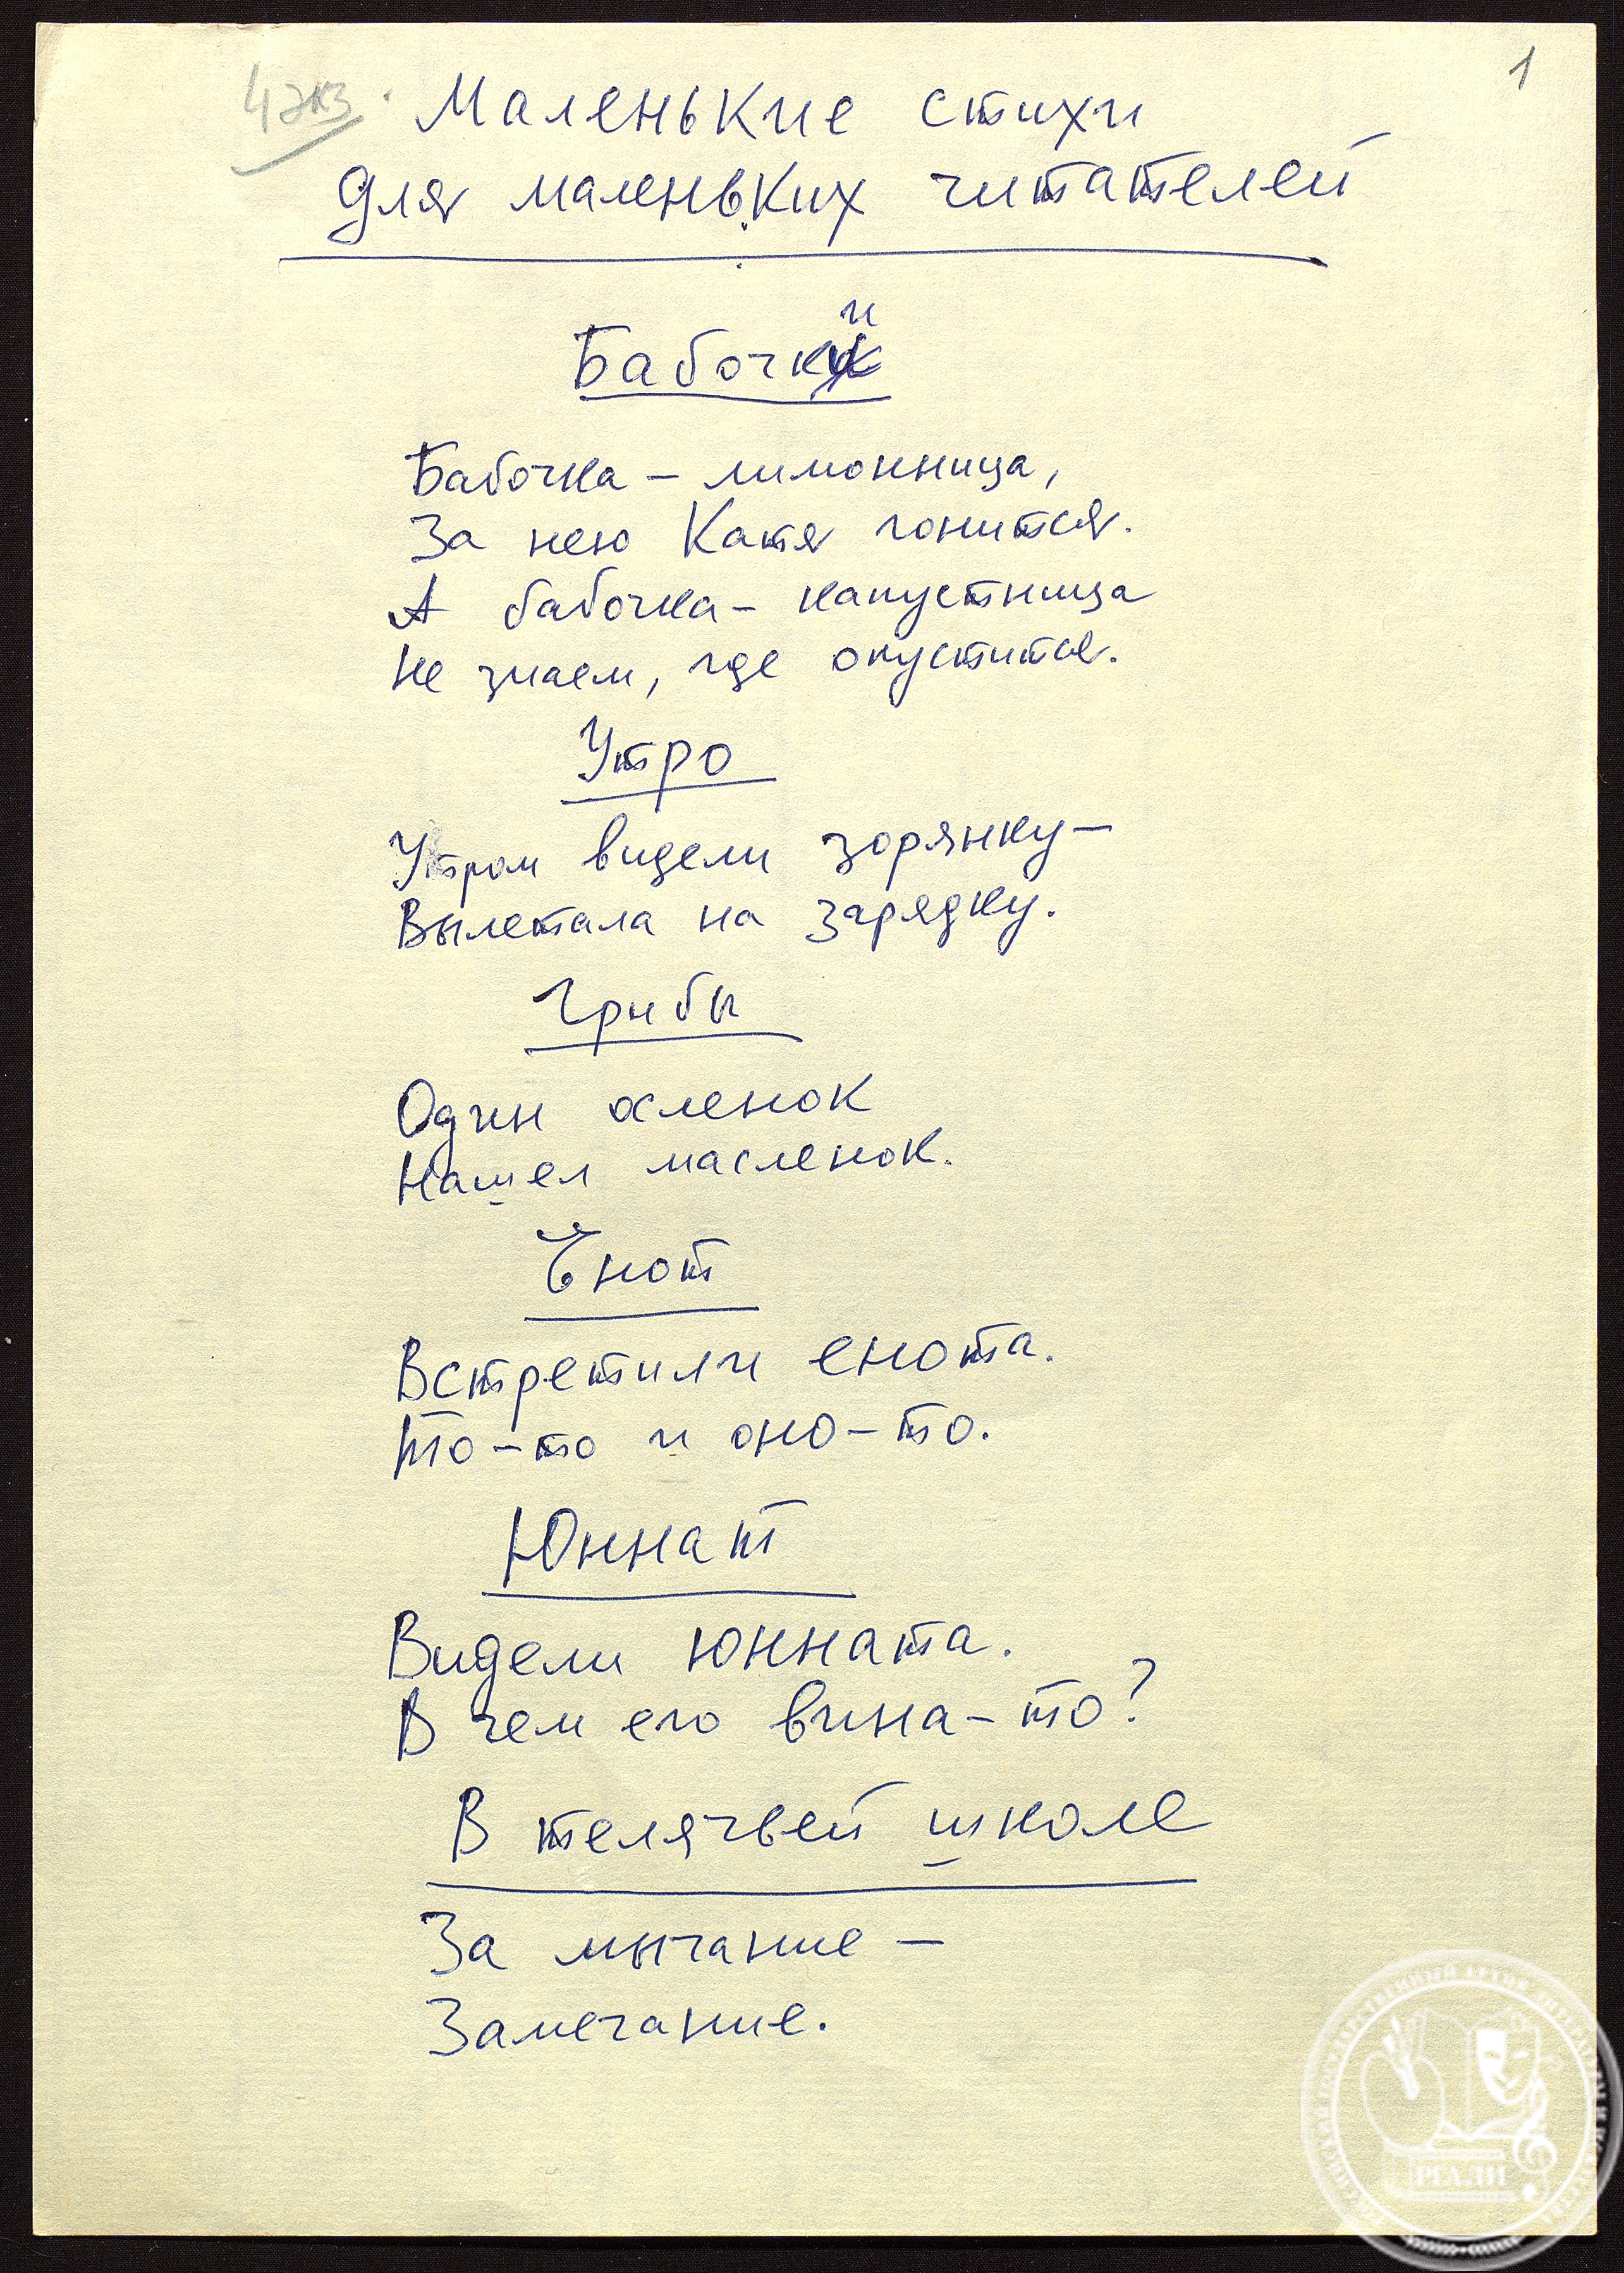 4 экз.
1
Маленькие стихи
для маленьких читателей
Бабочки
Бабочка – лимонница,
За нею Катя гонится.
А бабочка – капустница
Не знаем, где опустится.
Утро
Утром видели зорянку –
Вылетала на зарядку.
Грибы
Один осленок
Нашел масленок.
Енот
Встретили енота.
То-то и оно-то.
Юннат
Видели юнната.
В чем его вина-то?
В телячьей школе
За мычание –
Замечание.
РГАЛИ